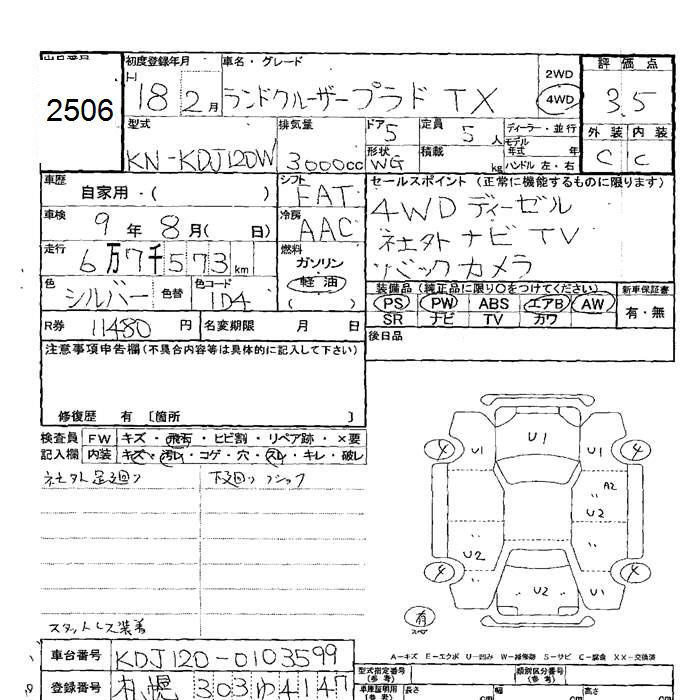 初度登録年月 車名・グレード 評価点
2506
H 18 2月 ランドクルーザープラド TX 2WD 4WD 3.5
型式 排気量 ドア 5 定員 5人 ディーラー・並行 外装 内装
モデル年式 年
KN-KDJ120W 3000cc 形状 WG 積載 kg ハンドル 左・右 C C
車歴 自家用・( ) シフト FAT セールスポイント(正常に機能するものに限ります)
車検 9年8月( 日) 冷房 AAC 4WD ディーゼル
走行 6万7千573km 燃料 ガソリン 軽油 ( ) 社外ナビTV
バックカメラ
色 シルバー 色替 色コード 1D4
装備品(純正品に限り○をつけてください) 新車保証書
PS PW ABS エアB AW 有・無
SR ナビ TV カワ
R券 11480円 名変期限 月 日
後日品
注意事項申告欄(不具合内容等は具体的に記入して下さい)
修復歴 有 〔箇所 〕
検査員 FW キズ・飛石・ヒビ割・リペア跡・×要
記入欄 内装 キズ・汚レ・コゲ・穴・スレ・キレ・破レ
社外足廻り 下廻りフック
スタットレス装着
U1
4 U1 U1 4
A2
U2
U2
4 4
U2 U1
有
スペア
A-キズ E-エクボ U-凹み W-補修跡 S-サビ C-腐食 XX-交換済
車台番号 KDJ120-0103599
型式指定番号(参考) 類別区分番号(参考)
登録番号 札幌 303 ゆ 4147
車庫証明用(参考) 長さ cm 幅 cm 高さ cm